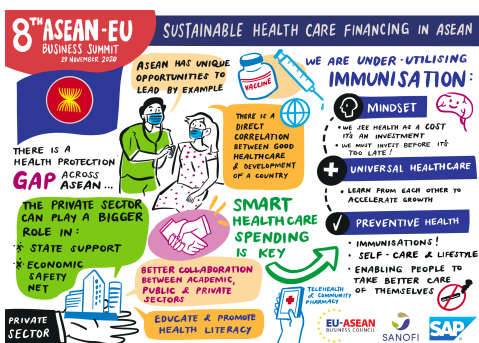 8TH ASEAN-EU
BUSINESS SUMMIT
19 NOVEMBER 2020
SUSTAINABLE HEALTH CARE FINANCING IN ASEAN
ASEAN HAS UNIQUE
OPPORTUNITIES TO
LEAD BY EXAMPLE
VACCINE
THERE IS A
DIRECT
CORRELATION
BETWEEN GOOD
HEALTHCARE
& DEVELOPMENT
OF A COUNTRY
THERE IS A
HEALTH PROTECTION
GAP ACROSS
ASEAN...
THE PRIVATE SECTOR
CAN PLAY A BIGGER
ROLE IN:
STATE SUPPORT
ECONOMIC
SAFETY
NET
PRIVATE
SECTOR
SMART
HEALTHCARE
SPENDING
IS KEY
BETTER COLLABORATION
BETWEEN ACADEMIC,
PUBLIC & PRIVATE
SECTORS
EDUCATE & PROMOTE
HEALTH LITERACY
WE ARE UNDER-UTILISING
IMMUNISATION:
MINDSET
• WE SEE HEALTH AS A COST
IT'S AN INVESTMENT
• WE MUST INVEST BEFORE IT'S
TOO LATE!
UNIVERSAL HEALTHCARE
• LEARN FROM EACH OTHER TO
ACCELERATE GROWTH
PREVENTIVE HEALTH
• IMMUNISATIONS!
• SELF-CARE & LIFESTYLE
• ENABLING PEOPLE TO
TAKE BETTER CARE
OF THEMSELVES
TELEHEALTH
& COMMUNITY
PHARMACY
EU-ASEAN
BUSINESS COUNCIL
SANOFI
SAP